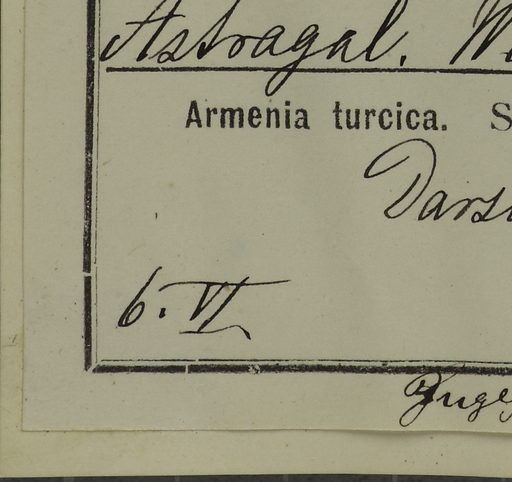 Astragal. W
Armenia turcica. S
Dars
6. VI